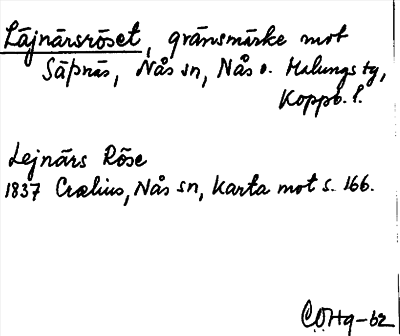 Läjnärsröset, gränsmärke mot
Säpnäs, Nås sn, Nås o. Malungs tg,
Koppb. l.
Lejnärs Röse
1837 Crælius, Nås sn, Karta mot s. 166.
COHg-62